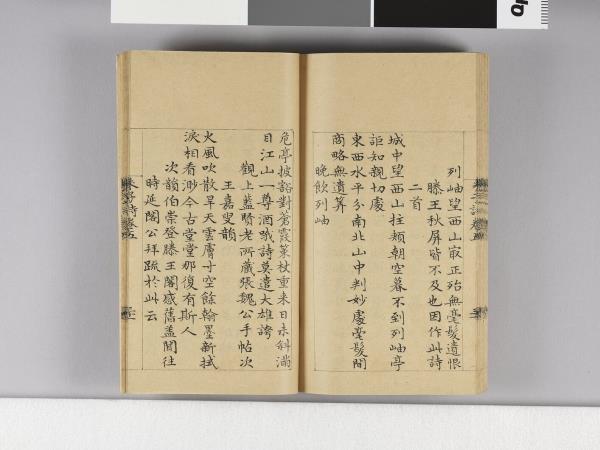 列岫望西山最正殆無毫髮遺恨
滕王秋屏皆不及也因作此詩
二首
城中望西山拄頰朝空暮不到列岫亭
詎知親切處
東西水平分南北山中判妙處毫髮間
商略無遺筭
晚飲列岫
危亭披豁對蒼霞策杖重来日未斜滿
目江山一尊酒哦詩莫遣大雄誇
觀上藍賢老所藏張魏公手帖次
王嘉叟韻
火風吹散旱天雲膚寸空餘翰墨新拭
淚相看渺今古堂堂那復有斯人
次韻伯崇登滕王閣感舊盖聞往
時延閣公拜疏於此云